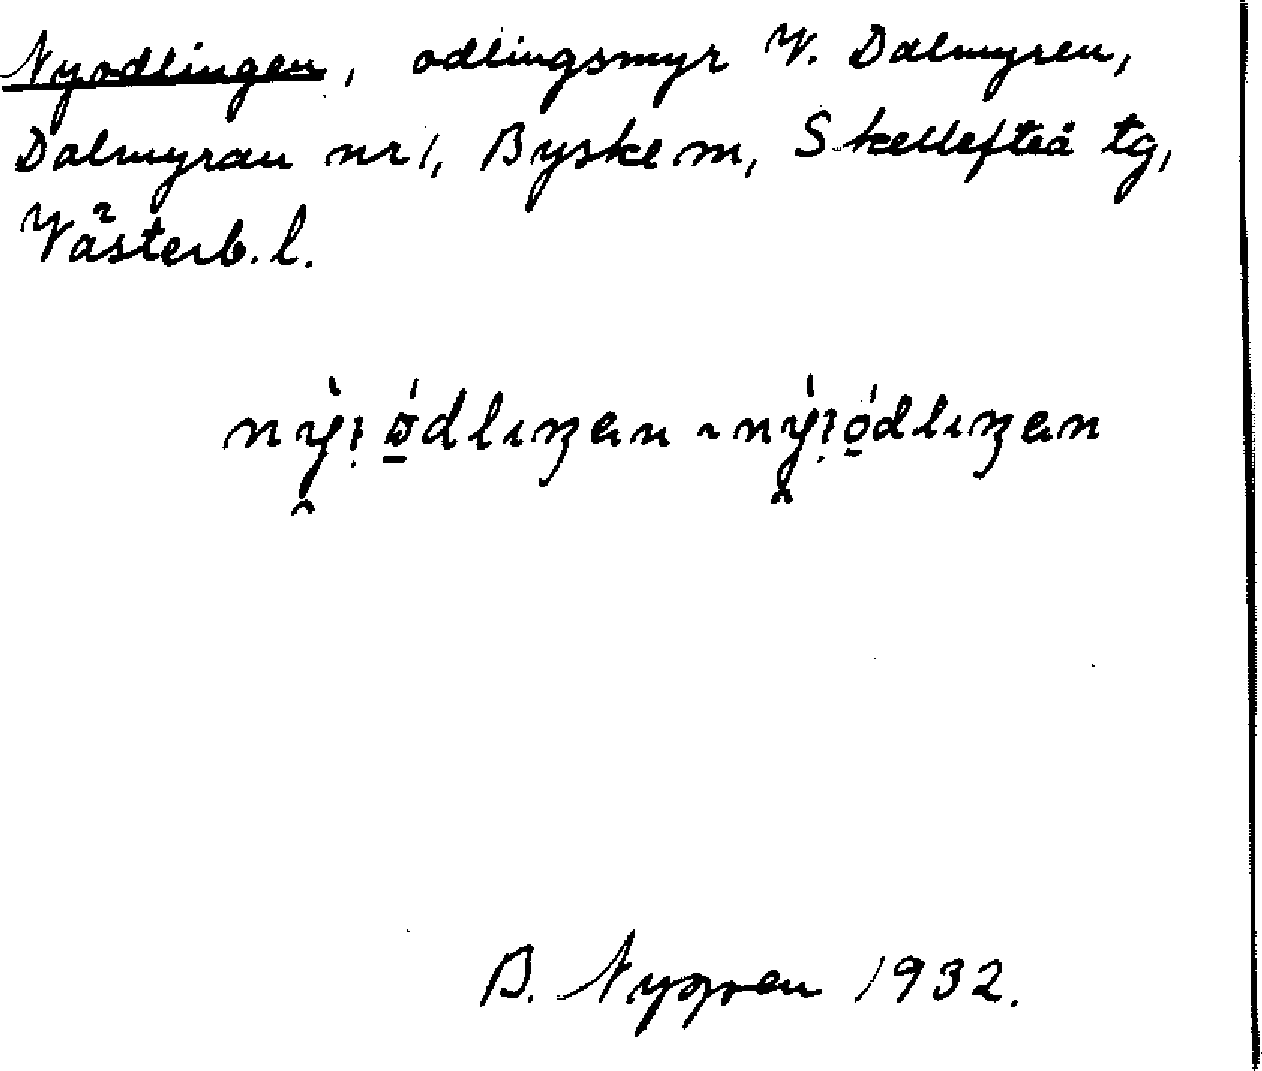 Nyodlingen, odlingsmyr V. Dalmyren,
Dalmyran nr 1, Byske sn, Skellefteå tg,
Västerb. l.
B. Nygren 1932.